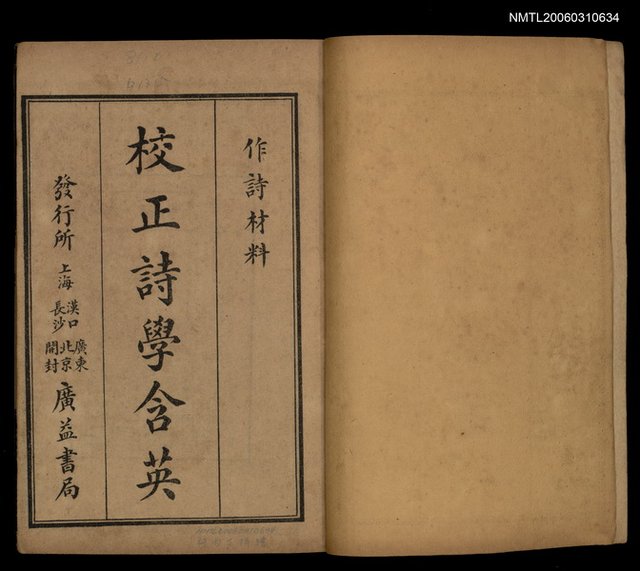 NMTL20060310634
作詩材料
校正詩學含英
發行所 上海 漢口 長沙 廣東 北京 開封 廣益書局